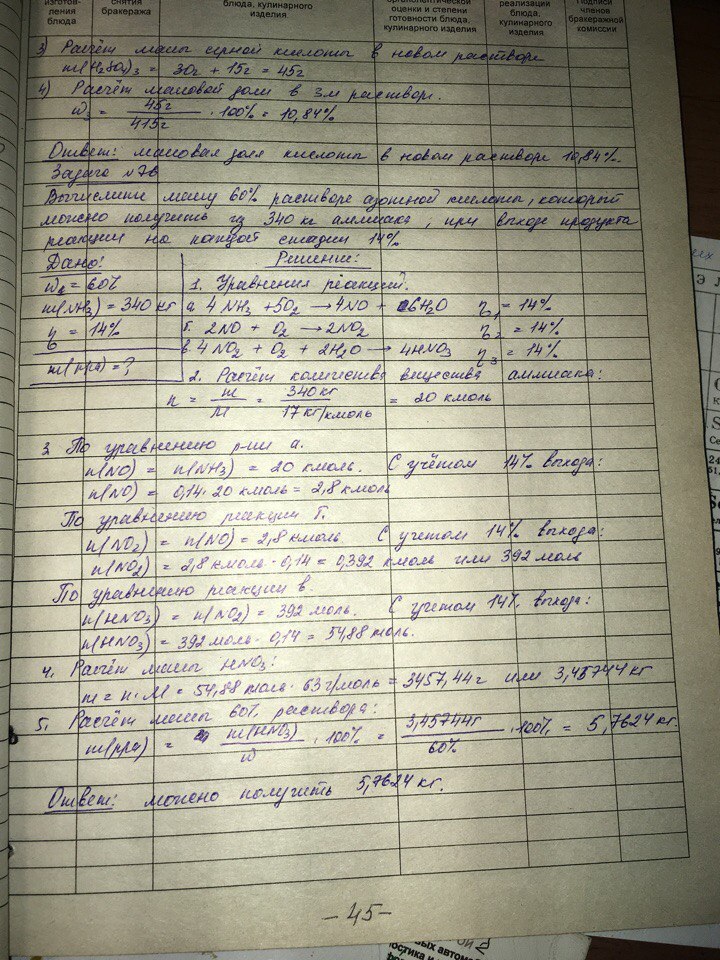 изготов-
ления
блюда
снятия
бракеража
блюда, кулинарного
изделия
органолептической
оценки и степени
готовности блюда,
кулинарного изделия
реализации
блюда,
кулинарного
изделия
Подписи
членов
бракеражной
комиссии
3) Расчёт массы серной кислоты в новом растворе
m(H2SO4)3 = 30г + 15г = 45г
4) Расчёт массовой доли в 3м растворе.
ω3 = 45г / 415г · 100% = 10,84%
Ответ: массовая доля кислоты в новом растворе 10,84%.
Задача №7в
Вычислите массу 60% раствора азотной кислоты, который
можно получить из 340 кг аммиака, при выходе продукта
реакции на каждой стадии 14%
Дано:
Решение:
ω1 = 60%
1. Уравнения реакций.
m(NH3) = 340 кг
а. 4NH3 + 5O2 → 4NO + 6H2O η1 = 14%
η = 14%
б. 2NO + O2 → 2NO2 η2 = 14%
в. 4NO2 + O2 + 2H2O → 4HNO3 η3 = 14%
m(рра) = ?
2. Расчёт количества вещества аммиака:
n = m / M = 340 кг / 17 кг/кмоль = 20 кмоль
3. По уравнению р-ии а.
n(NO) = n(NH3) = 20 кмоль. С учётом 14% выхода:
n(NO) = 0,14 · 20 кмоль = 2,8 кмоль
По уравнению реакции б.
n(NO2) = n(NO) = 2,8 кмоль С учетом 14% выхода:
n(NO2) = 2,8 кмоль · 0,14 = 0,392 кмоль или 392 моль
По уравнению реакции в.
n(HNO3) = n(NO2) = 392 моль. С учетом 14% выхода:
n(HNO3) = 392 моль · 0,14 = 54,88 моль.
4. Расчёт массы HNO3:
m = n · M = 54,88 моль · 63 г/моль = 3457,44 г или 3,45744 кг
5. Расчёт массы 60% раствора:
m(рра) = m(HNO3) / ω · 100% = 3,45744кг / 60% · 100% = 5,7624 кг.
Ответ: можно получить 5,7624 кг.
- 45 -